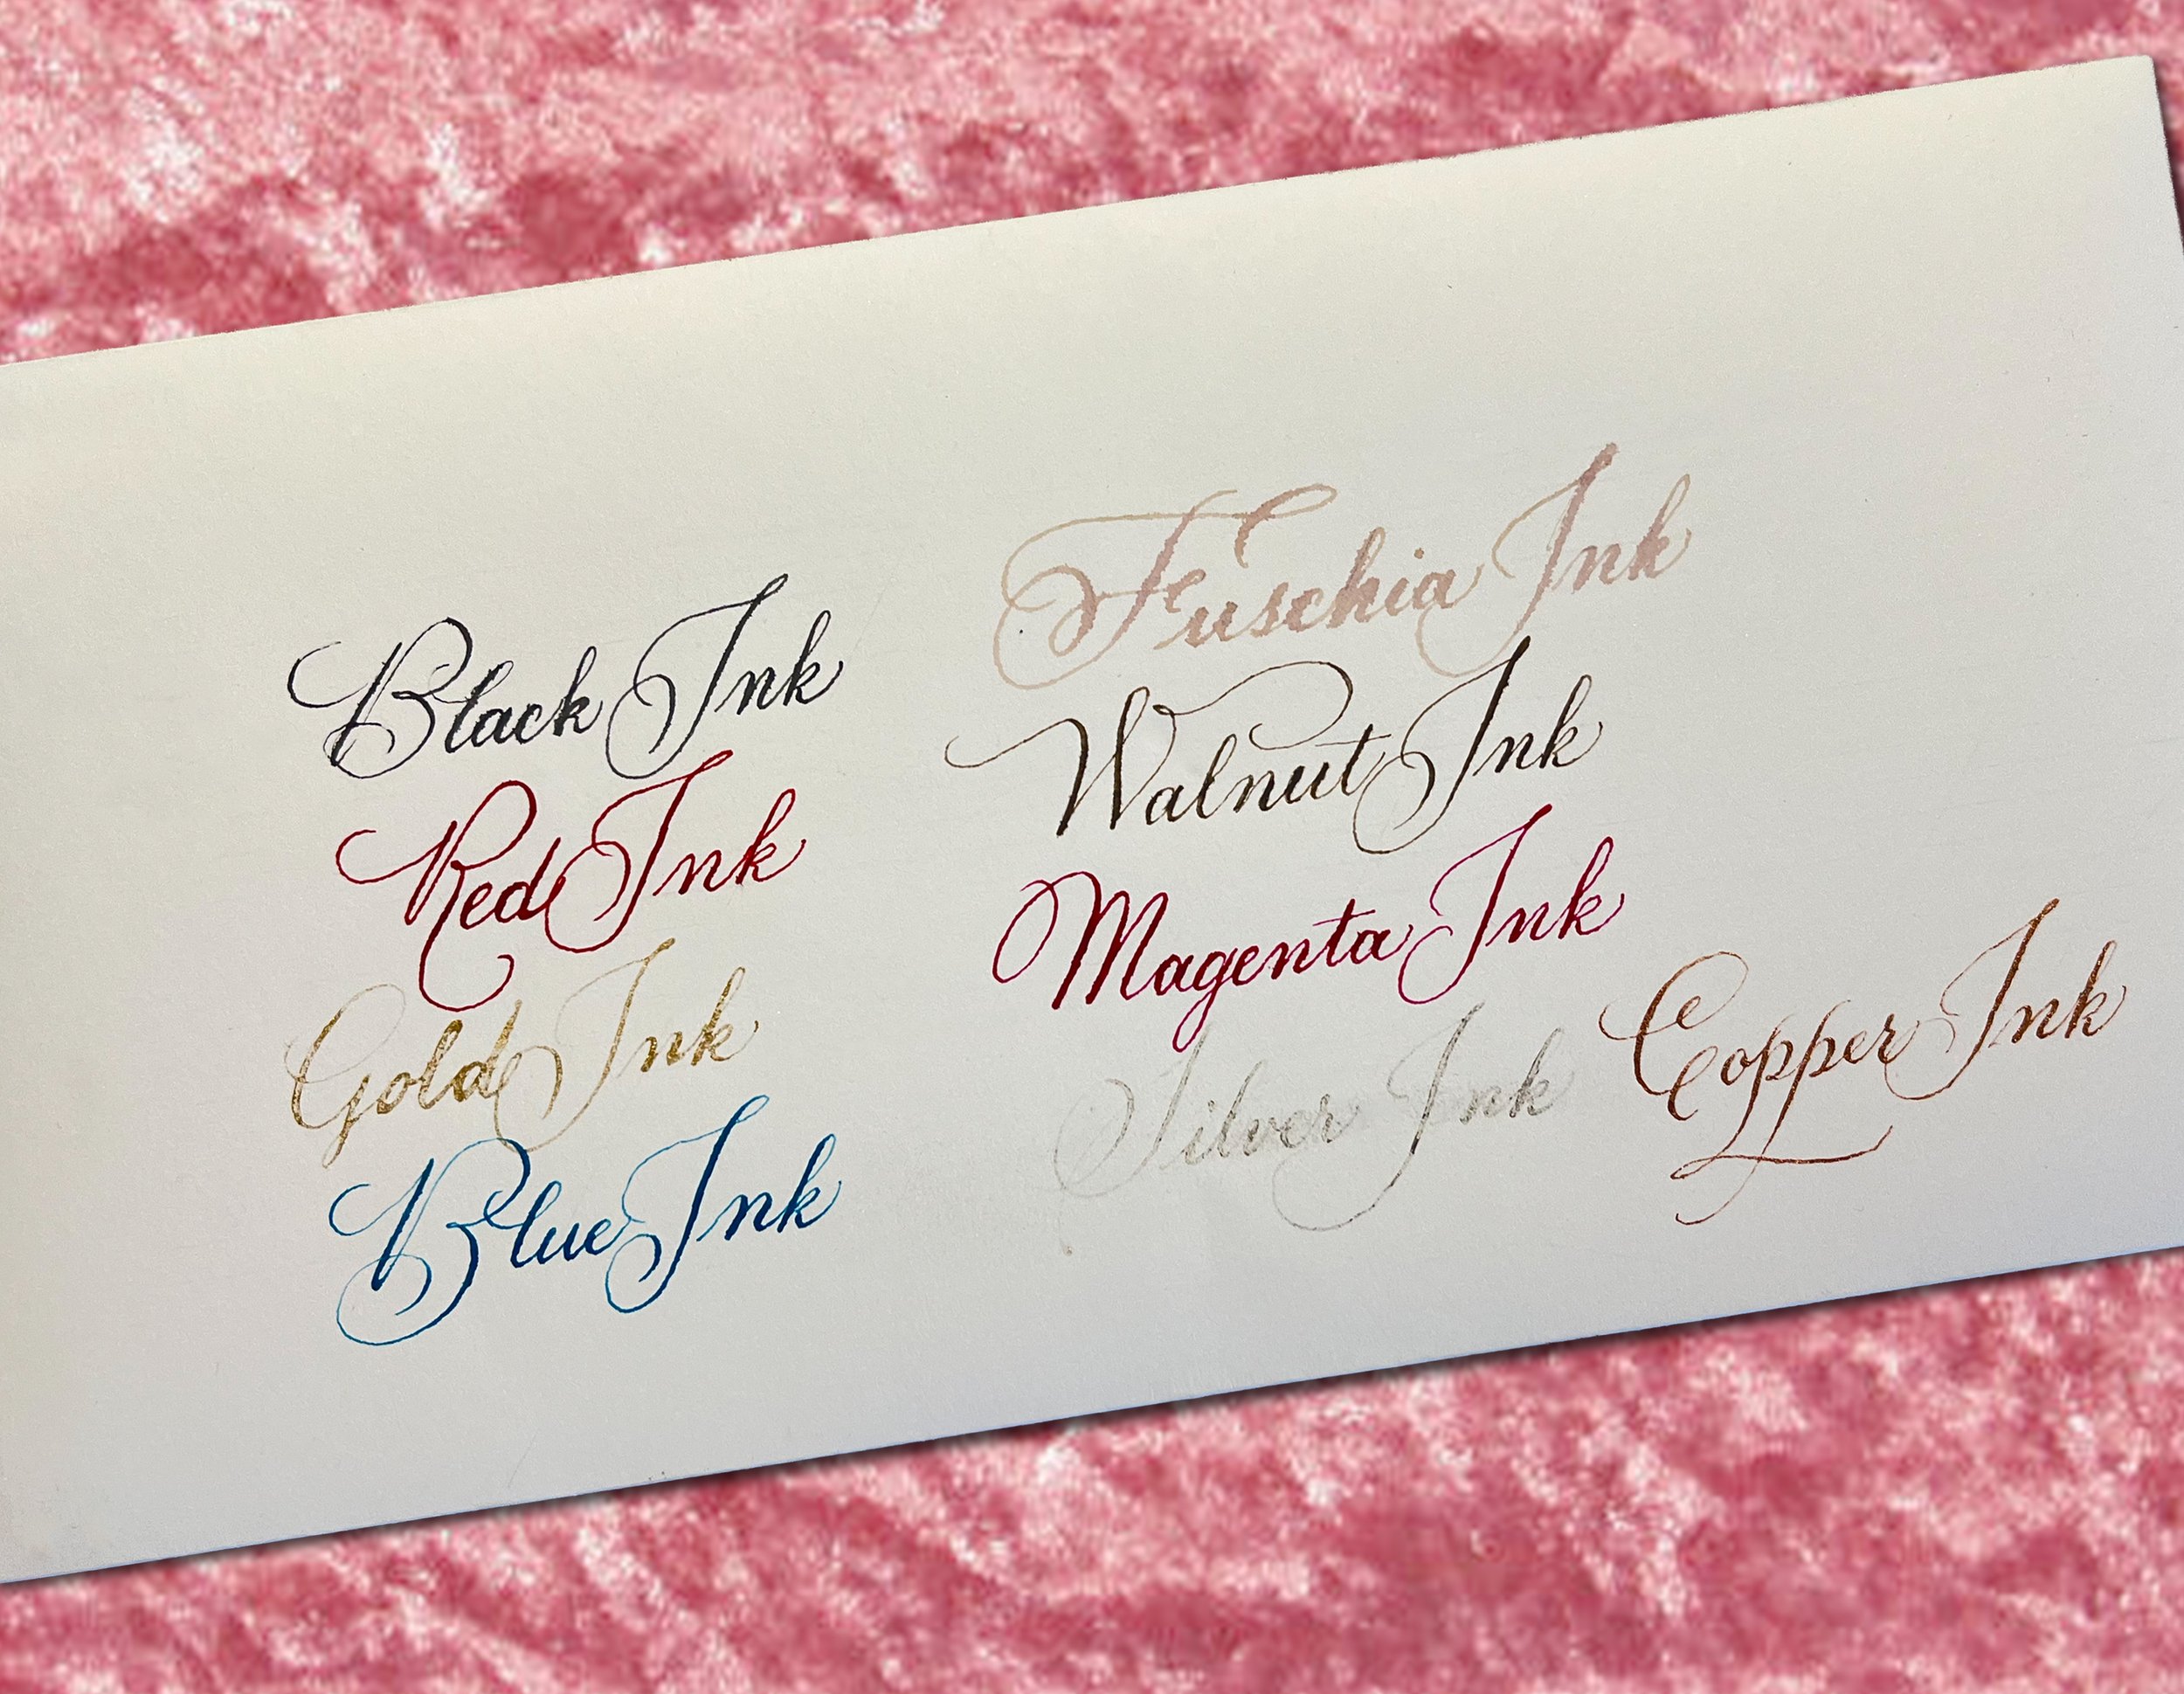 Black Ink
Red Ink
Gold Ink
Blue Ink
Fuschia Ink
Walnut Ink
Magenta Ink
Silver Ink
Copper Ink